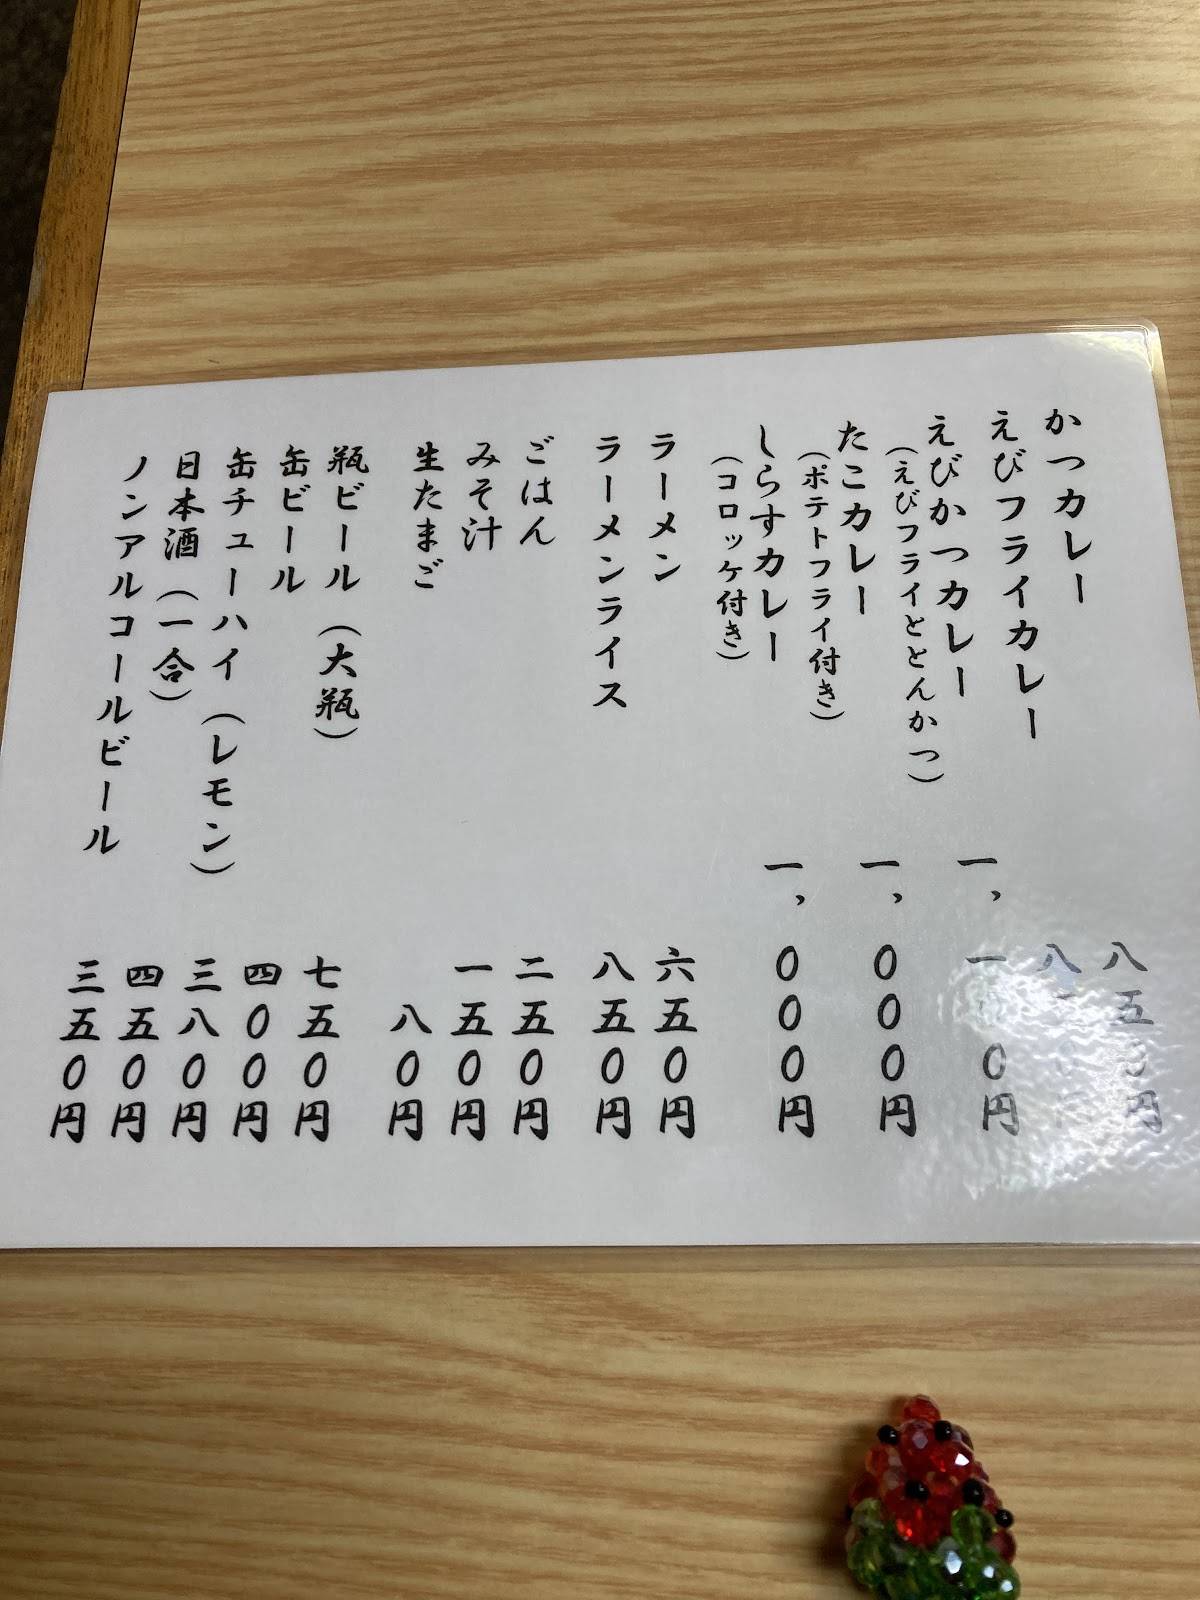 かつカレー 八五〇円
えびフライカレー 八
えびかつカレー 一、一 〇円
(えびフライととんかつ)
たこカレー 一、〇〇〇円
(ポテトフライ付き)
しらすカレー 一、〇〇〇円
(コロッケ付き)
ラーメン 六五〇円
ラーメンライス 八五〇円
ごはん 二五〇円
みそ汁 一五〇円
生たまご 八〇円
瓶ビール(大瓶) 七五〇円
缶ビール 四〇〇円
缶チューハイ(レモン) 三八〇円
日本酒(一合) 四五〇円
ノンアルコールビール 三五〇円